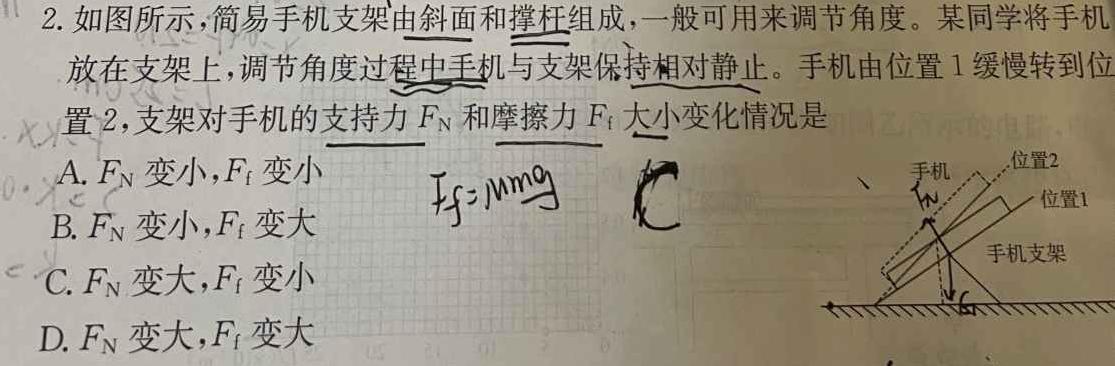 2. 如图所示,简易手机支架由斜面和撑杆组成,一般可用来调节角度。某同学将手机
放在支架上,调节角度过程中手机与支架保持相对静止。手机由位置1缓慢转到位
置2,支架对手机的支持力 FN 和摩擦力 Ff 大小变化情况是
A. FN 变小,Ff 变小
B. FN 变小,Ff 变大
C. FN 变大,Ff 变小
D. FN 变大,Ff 变大
Ff=μmg
C
手机
位置2
FN
位置1
手机支架
G